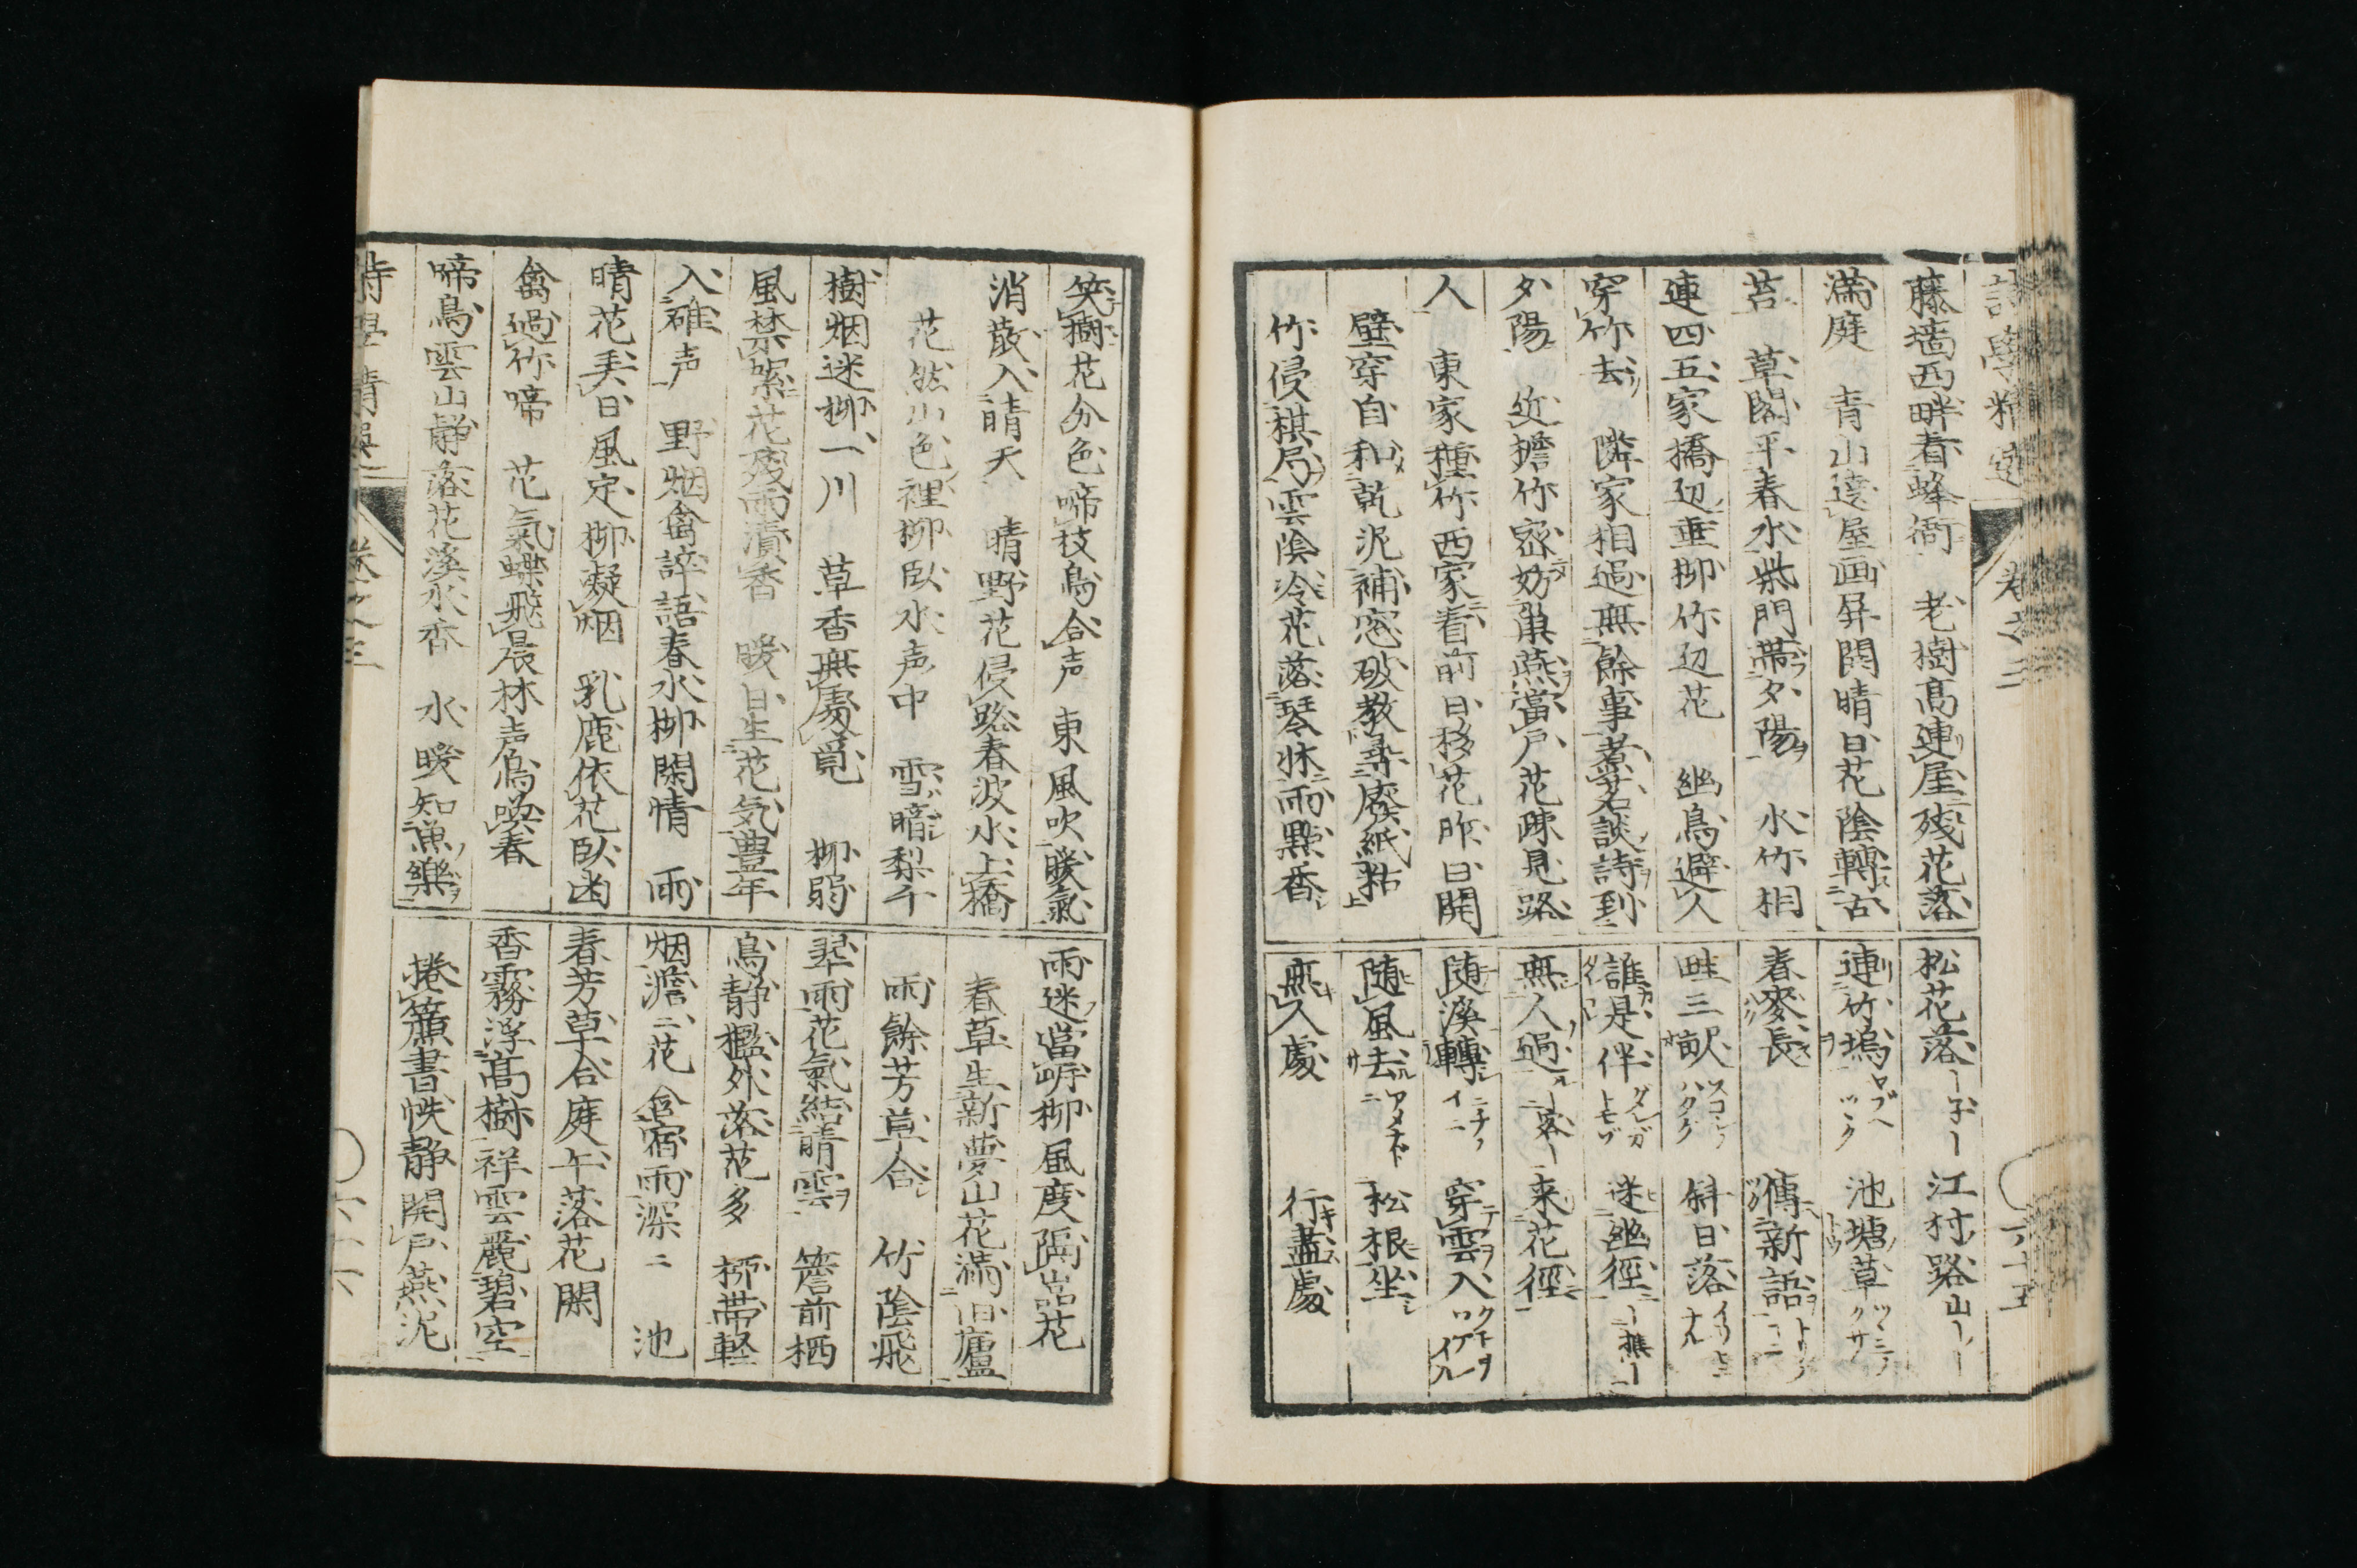 藤墻西畔看蜂衙　老樹高連屋残花落
満庭　青山遶屋画屏開晴日花陰轉古
苔　草閣平春水柴門帯夕陽　水竹相
連四五家橋辺垂柳竹辺花　幽鳥避人
穿竹去　隣家相過無餘事煮茗談詩到
夕陽　近擔竹密妨巣燕當戸花疎見路
人　東家種竹西家看前日移花昨日開
壁穿自和乾泥補窓破教尋廃紙粘
竹侵棋局雲陰冷花落琴床雨點香
松花落　江村路
連竹塢　池塘草
春麥長　傳新語
畦三畝　斜日落
誰是伴　迷幽徑
無人過　来花徑
随溪轉　穿雲入
随風去　松根坐
無人處　行盡處
巻之三
六十五
笑樹花分色啼枝鳥合声　東風吹暖氣
消散入晴天　晴野花侵路春波水上橋
花然山色裡柳臥水声中　雪暗梨千
樹烟迷柳一川　草香無處覓　柳弱
風禁絮花残雨漬香　暖日生花気豊年
入碓声　野烟禽誶語春水柳閑情　雨
晴花美日風定柳凝烟　乳鹿依花臥幽
禽過竹啼　花氣蝶飛晨林声鳥喚春
啼鳥雲山静落花溪水香　水暖知漁樂
雨迷當岍柳風度隔岩花
春草生新夢山花満旧廬
雨餘芳草合　竹陰飛
翠雨花氣結晴雲　簷前栖
鳥静檻外落花多　柳帯軽
烟澹二花含宿雨深二　池
春芳草合庭午落花閑
香霧浮高樹祥雲麗碧空
捲簾書帙静開戸燕泥
巻之三
六十六